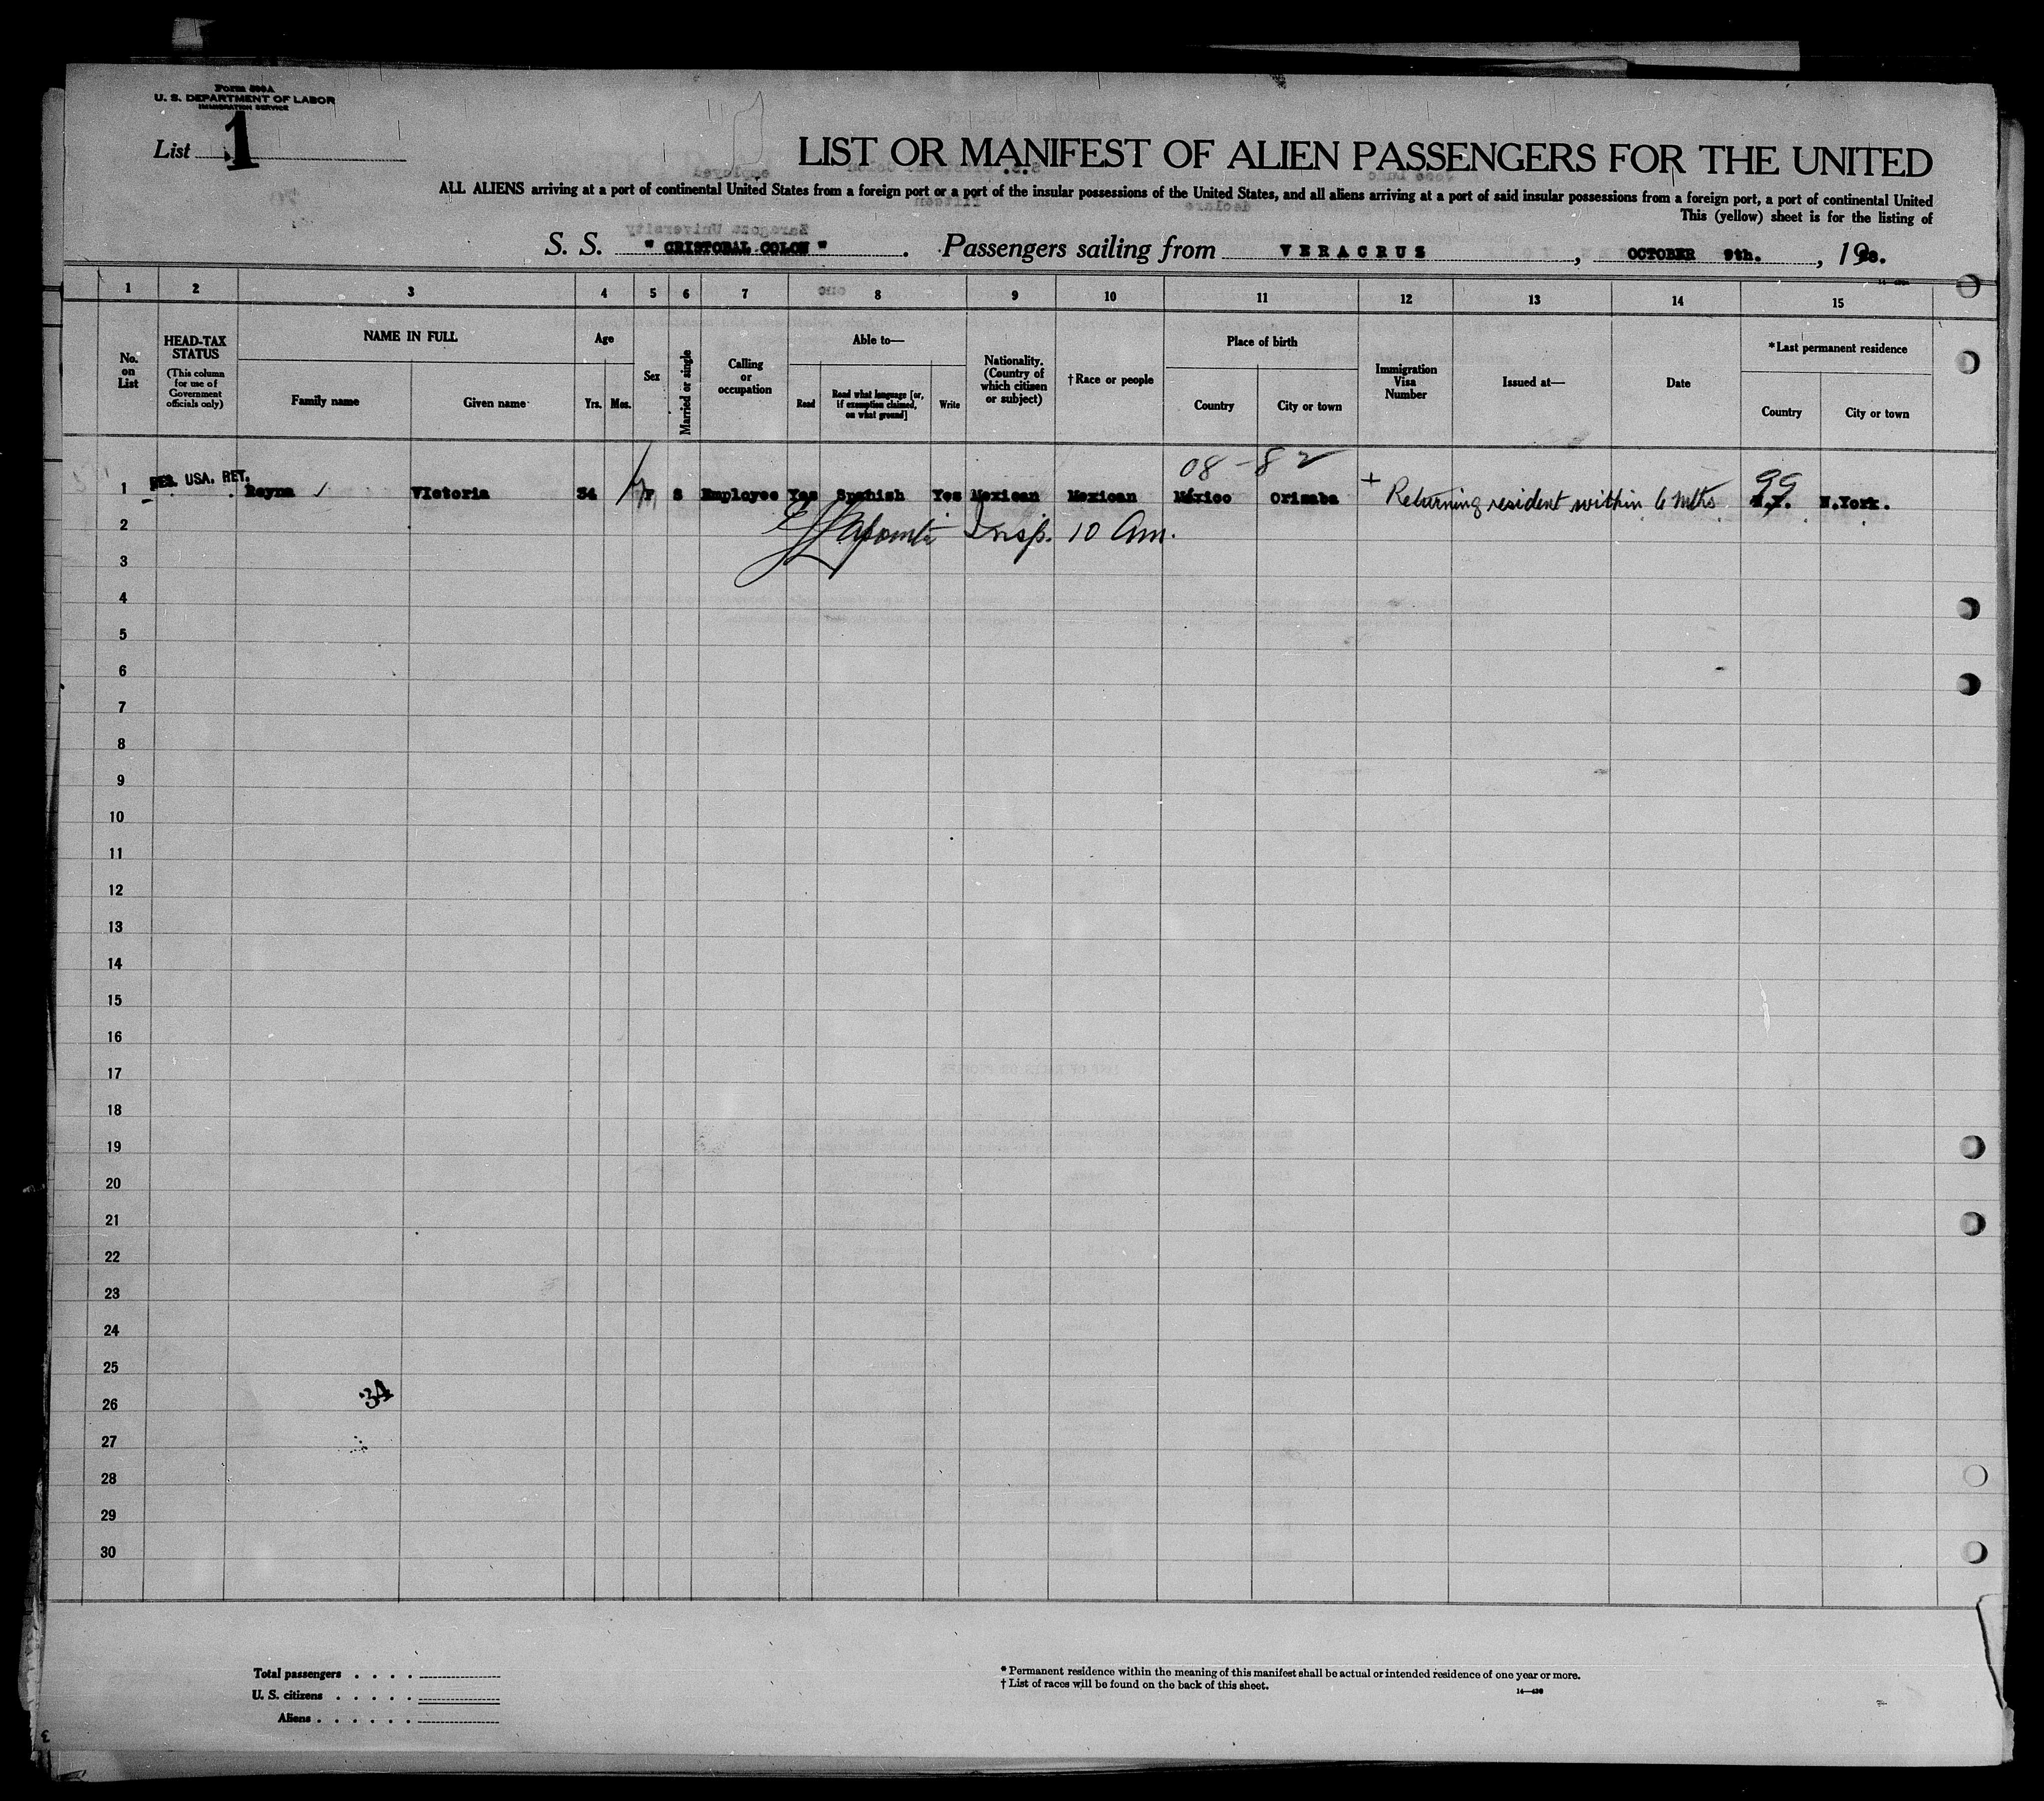 Form 500A
U. S. DEPARTMENT OF LABOR
IMMIGRATION SERVICE
List 1
LIST OR MANIFEST OF ALIEN PASSENGERS FOR THE UNITED
ALL ALIENS arriving at a port of continental United States from a foreign port or a port of the insular possessions of the United States, and all aliens arriving at a port of said insular possessions from a foreign port, a port of continental United
This (yellow) sheet is for the listing of
S. S. " CRISTOBAL COLON " . Passengers sailing from VERACRUS , OCTOBER 9th. , 19
1 2 3 4 5 6 7 8 9 10 11 12 13 14 15
No. on List
HEAD-TAX STATUS (This column for use of Government officials only)
NAME IN FULL
Family name Given name
Age
Yrs. Mos.
Sex
Married or single
Calling or occupation
Able to—
Read Read what language [or, if exemption claimed, on what ground] Write
Nationality. (Country of which citizen or subject)
†Race or people
Place of birth
Country City or town
Immigration Visa Number
Issued at—
Date
*Last permanent residence
Country City or town
08-82 99
1 RES. USA. RET. Reyna VIctoria 34 F S Employee Yes Spanish Yes Mexican Mexican México Orizaba + Returning resident within 6 mths N.Y. N.York.
2 Insp. 10 Am.
3
4
5
6
7
8
9
10
11
12
13
14
15
16
17
18
19
20
21
22
23
24
25
34
26
27
28
29
30
Total passengers . . . .
U. S. citizens . . . . .
Aliens . . . . . .
* Permanent residence within the meaning of this manifest shall be actual or intended residence of one year or more.
† List of races will be found on the back of this sheet.